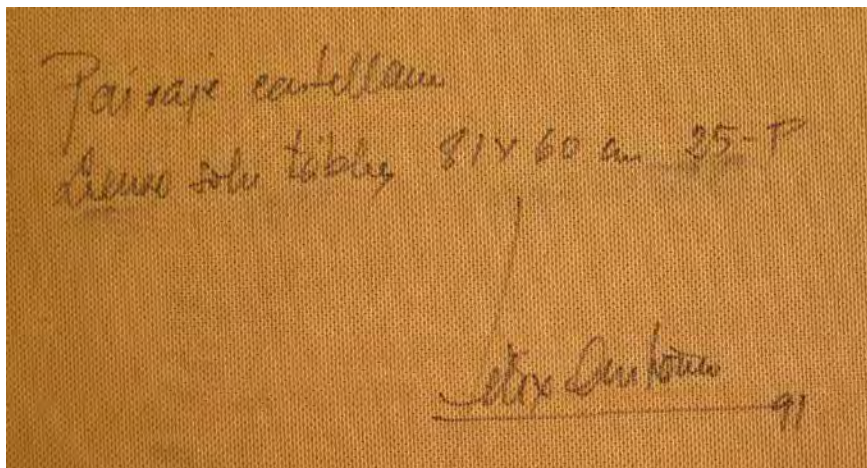 Paisaje castellano
Lienzo sobre tabley 81x60 cm 25-P
Felix Antonio
91